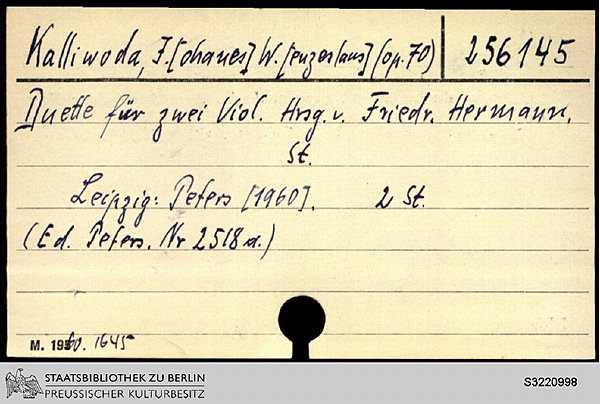 Kalliwoda, J.[ohanes] W.[enzeslaus] (op. 70) 256145
Duette für zwei Viol. Hrsg. v. Friedr. Hermann.
St.
Leipzig: Peters [1960]. 2 St.
(Ed. Peters. Nr 2518a.)
M. 1960. 1645
STAATSBIBLIOTHEK ZU BERLIN
PREUSSISCHER KULTURBESITZ
S3220998